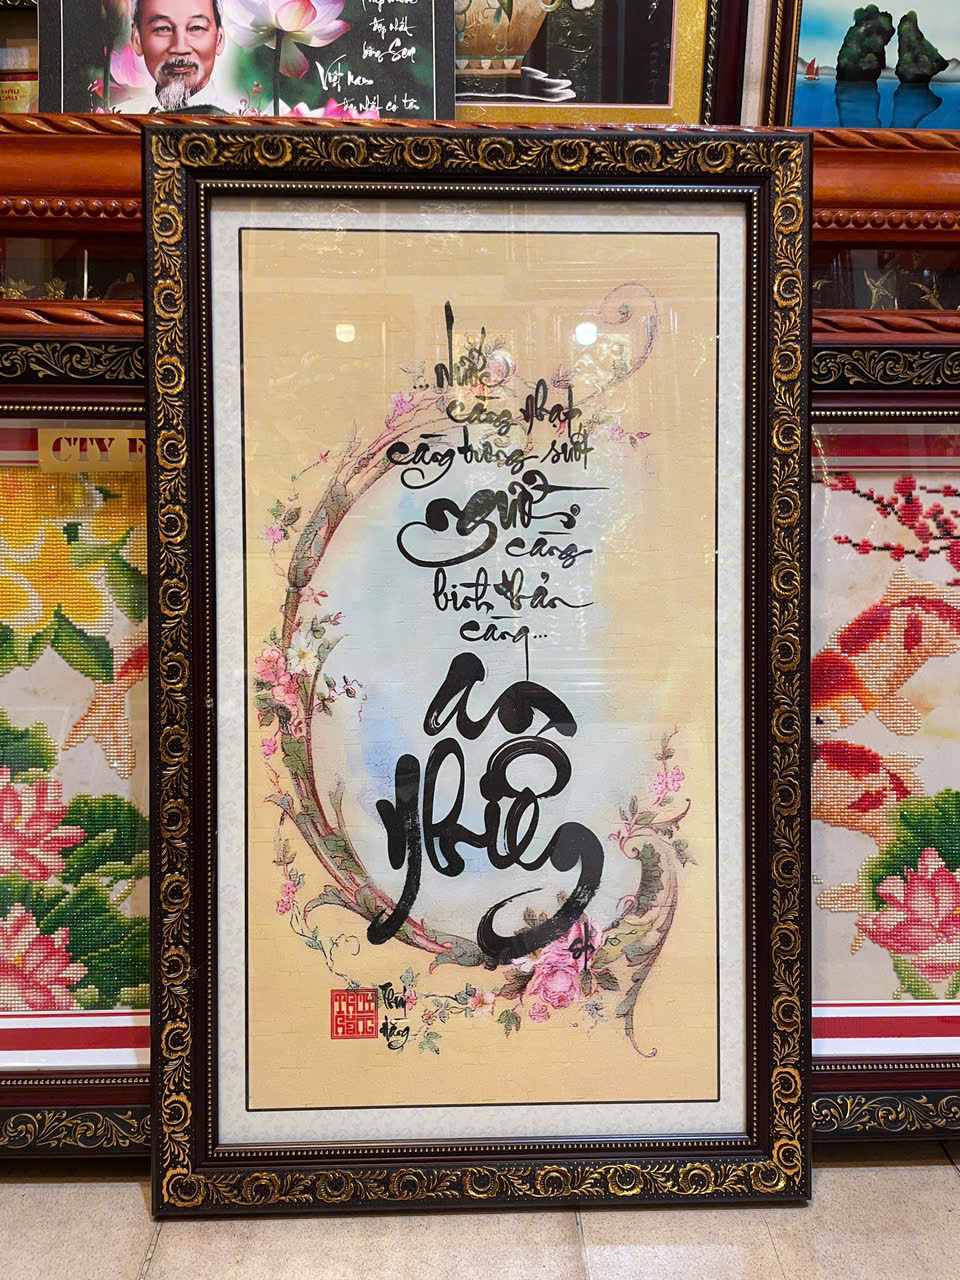 đẹp nhất
bông Sen
Việt Nam
đẹp nhất có tên
CTY
... Nước
càng nhạt
càng trong suốt
Người
càng
bình thản
càng...
an
nhiên
THUÝ
HẰNG
Thuý
Hằng